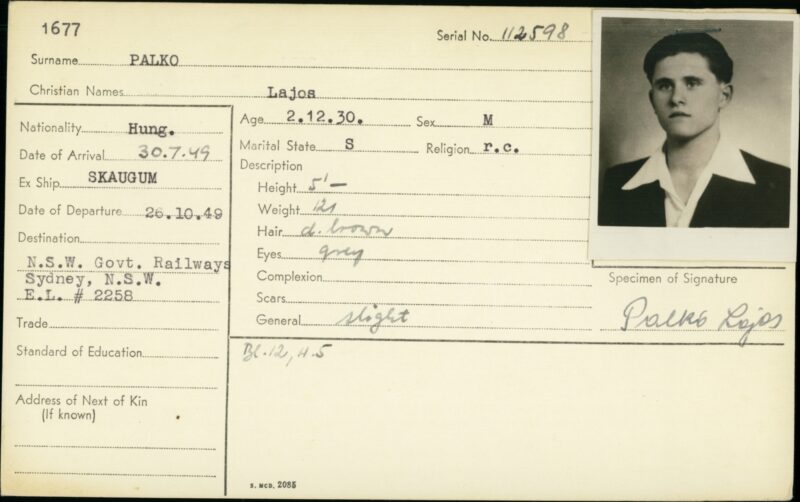 1677
Serial No. 112598
Surname PALKO
Christian Names Lajos
Nationality Hung.
Date of Arrival 30.7.49
Ex Ship SKAUGUM
Date of Departure 26.10.49
Destination
N.S.W. Govt. Railways
Sydney, N.S.W.
E.L. # 2258
Trade
Standard of Education
Address of Next of Kin
(If known)
Age 2.12.30. Sex M
Marital State S Religion r.c.
Description
Height 5'—
Weight 121
Hair d. brown
Eyes grey
Complexion
Scars
General slight
Bl. 12, H. 5
Specimen of Signature
Palko Lajos
S. MCD. 2085